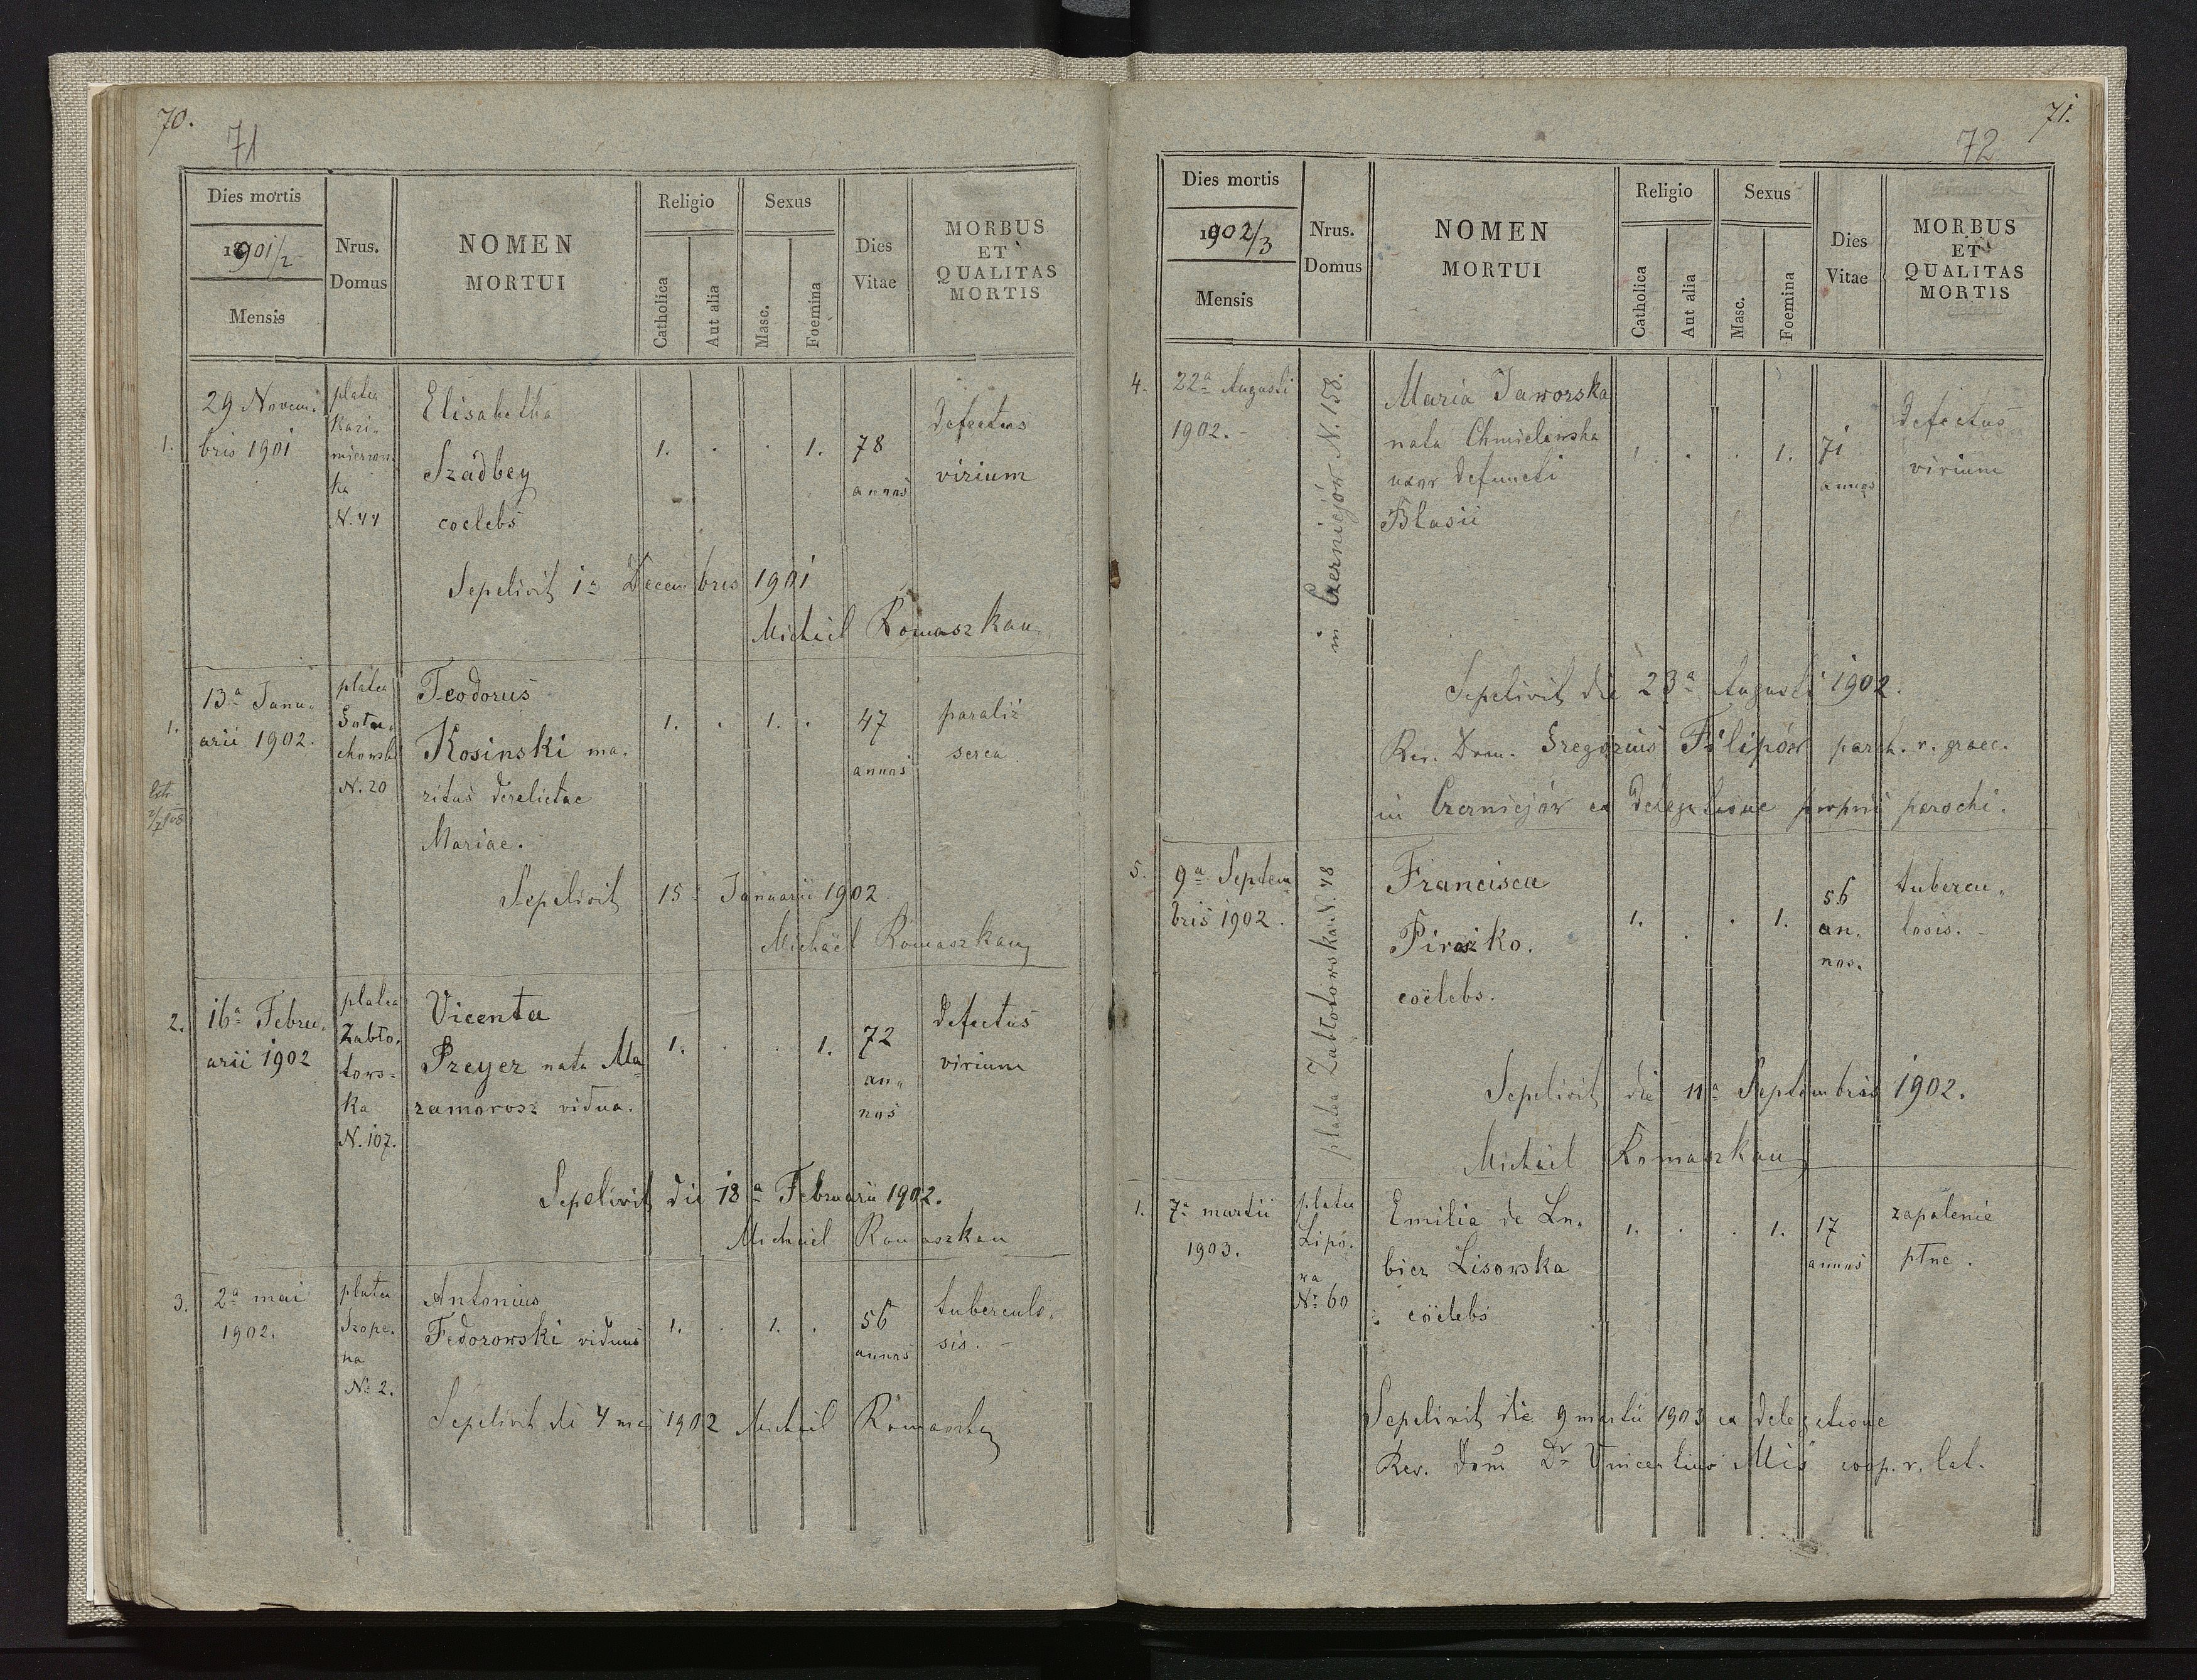 70.
71
Dies mortis
1901/2
Mensis
Nrus.
Domus
NOMEN
MORTUI
Religio
Catholica
Aut alia
Sexus
Masc.
Foemina
Dies
Vitae
MORBUS
ET
QUALITAS
MORTIS
1.
29 Novem.
bris 1901
platea
Kazi„
mierzow.
ka
N. 44
Elisabetha
Szádbey
coelebs
1. . . 1.
78
annos
defectus
virium
Sepelivit 1a Decembris 1901
Michaël Romaszkan
1.
13a Janu„
arii 1902.
platea
N. 20
Teodorus
Kosinski ma„
ritus derelictae
Mariae.
1. . 1. .
47
annos
paraliż
serca
Sepelivit 15a Januarii 1902
Michaël Romaszkan
2.
16a Febru„
arii 1902
platea
Zabło„
tows=
ka
N. 107.
Vicenta
Preyer nata Ma=
zamorosz vidua.
1. . . 1.
72
an„
nos
defectus
virium
Sepelivit die 18a Februarii 1902.
Michael Romaszkan
3.
2a mai
1902.
platea
Szope„
na
No 2.
Antonius
Fedorowski viduus
1. . 1. .
56
annos
tuberculo„
sis. –
Sepelivit di 4 mai 1902 Michael Romaszkan
71.
72
Dies mortis
1902/3
Mensis
Nrus.
Domus
NOMEN
MORTUI
Religio
Catholica
Aut alia
Sexus
Masc.
Foemina
Dies
Vitae
MORBUS
ET
QUALITAS
MORTIS
4.
22a Augusti
1902. –
in Czerniejów N. 158.
Maria Jaworska
nata Chmielewska
uxor defuncti
Blasii
1. . . 1.
71
annos
defectus
virium
Sepelivit die 23a Augusti 1902.
Rev. Dom. Gregorius Filipów paroch. r. graec.
in Czerniejów ex delegatione proprii parochi.
5.
9a Septem
bris 1902.
platea Zabłotowska N. 48
Francisca
Piroszko.
coëlebs.
1. . . 1.
56
an„
nos.
tubercu„
losis. –
Sepelivit die 11a Septembris 1902.
Michaël Romaszkan
1.
7a martii
1903.
platea
Lipo„
wa
No 60
Emilia de Lu„
bicz Lisowska
coëlebs
1. . . 1.
17
annos
zapalenie
płuc.
Sepelivit die 9 martii 1903 ex delegatione
Rev. Dom Dr Vincentius Miś coop. r. lat.